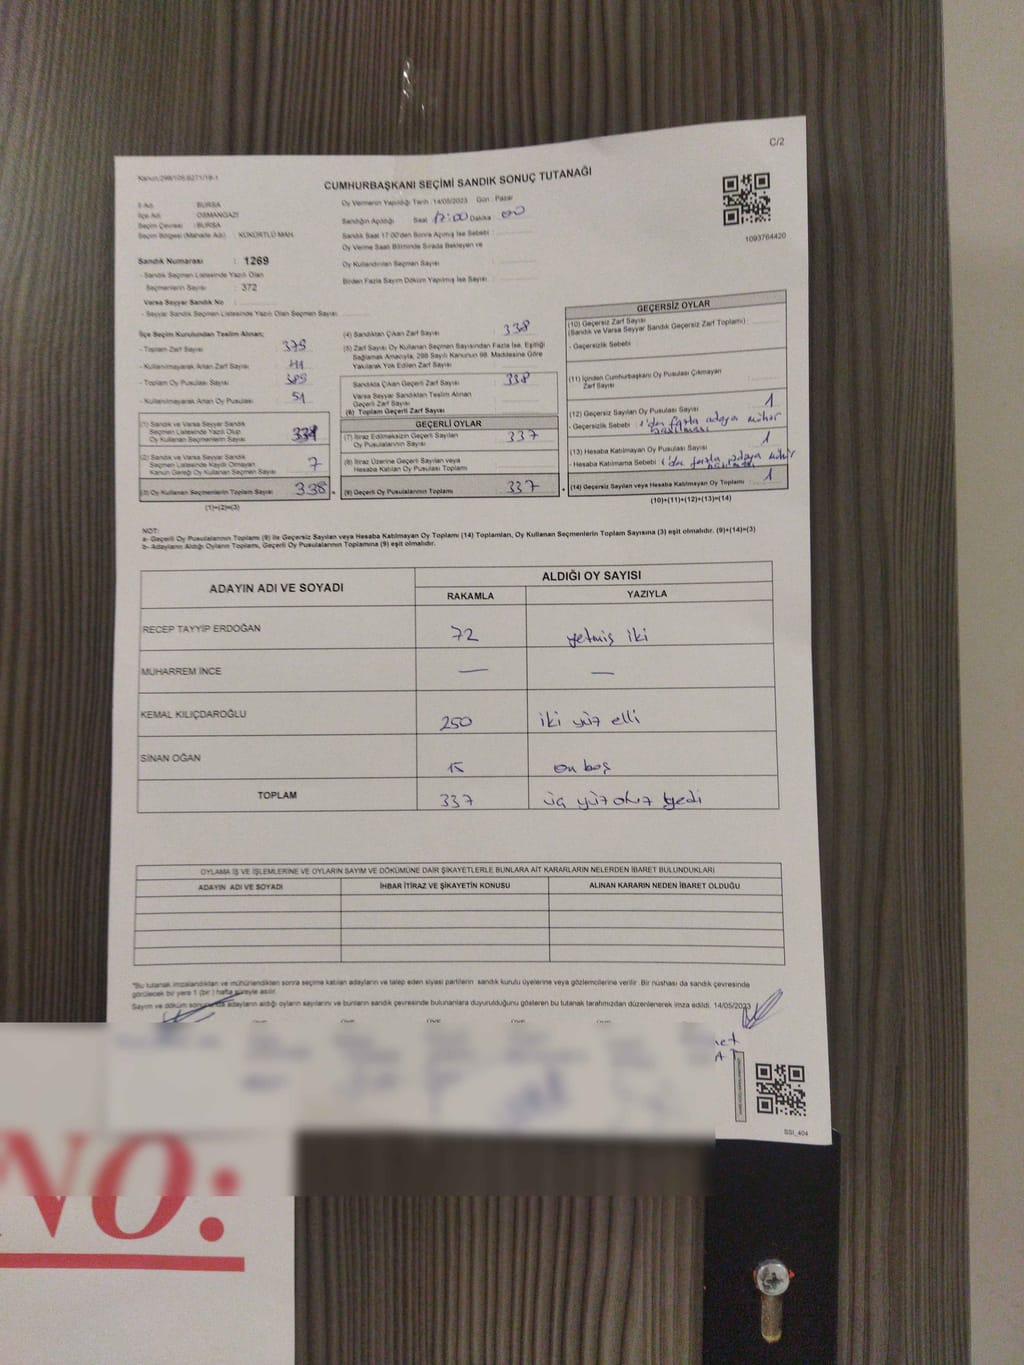 C/2
CUMHURBAŞKANI SEÇİMİ SANDIK SONUÇ TUTANAĞI
İl Adı : BURSA
İlçe Adı : OSMANGAZİ
Seçim Çevresi : BURSA
Seçim Bölgesi (Mahalle Adı) : KÜKÜRTLÜ MAH.
Oy Vermenin Yapıldığı Tarih : 14/05/2023 Gün : Pazar
Sandığın Açıldığı Saat 17:00 Dakika 00
Sandık Saat 17:00'den Sonra Açılmış İse Sebebi :
Oy Verme Saati Bitiminde Sırada Bekleyen ve
Oy Kullandırılan Seçmen Sayısı :
Birden Fazla Sayım Döküm Yapılmış İse Sayısı :
1093764420
Sandık Numarası : 1269
- Sandık Seçmen Listesinde Yazılı Olan
Seçmenlerin Sayısı : 372
Varsa Seyyar Sandık No :
- Seyyar Sandık Seçmen Listesinde Yazılı Olan Seçmen Sayısı :
İlçe Seçim Kurulundan Teslim Alınan;
- Toplam Zarf Sayısı
- Kullanılmayarak Artan Zarf Sayısı
- Toplam Oy Pusulası Sayısı
- Kullanılmayarak Artan Oy Pusulası : 51
(1) Sandık ve Varsa Seyyar Sandık
Seçmen Listesinde Yazılı Olup
Oy Kullanan Seçmenlerin Sayısı
(2) Sandık ve Varsa Seyyar Sandık
Seçmen Listesinde Kaydı Olmayan
Kanun Gereği Oy Kullanan Seçmen Sayısı 7
(3) Oy Kullanan Seçmenlerin Toplam Sayısı 338
(1)+(2)=(3)
(4) Sandıktan Çıkan Zarf Sayısı : 338
(5) Zarf Sayısı Oy Kullanan Seçmen Sayısından Fazla İse, Eşitliği
Sağlamak Amacıyla, 298 Sayılı Kanunun 98. Maddesine Göre
Yakılarak Yok Edilen Zarf Sayısı
Sandıkta Çıkan Geçerli Zarf Sayısı : 338
Varsa Seyyar Sandıktan Teslim Alınan
Geçerli Zarf Sayısı
(6) Toplam Geçerli Zarf Sayısı
GEÇERLİ OYLAR
(7) İtiraz Edilmeksizin Geçerli Sayılan
Oy Pusulalarının Sayısı : 337
(8) İtiraz Üzerine Geçerli Sayılan veya
Hesaba Katılan Oy Pusulası Toplamı
(9) Geçerli Oy Pusulalarının Toplamı : 337
GEÇERSİZ OYLAR
(10) Geçersiz Zarf Sayısı
(Sandık ve Varsa Seyyar Sandık Geçersiz Zarf Toplamı) :
- Geçersizlik Sebebi :
(11) İçinden Cumhurbaşkanı Oy Pusulası Çıkmayan
Zarf Sayısı
(12) Geçersiz Sayılan Oy Pusulası Sayısı : 1
- Geçersizlik Sebebi : 1'den fazla adaya mühür
(13) Hesaba Katılmayan Oy Pusulası Sayısı : 1
- Hesaba Katılmama Sebebi : 1'den fazla adaya mühür
(14) Geçersiz Sayılan veya Hesaba Katılmayan Oy Toplamı : 1
(10)+(11)+(12)+(13)=(14)
NOT:
a- Geçerli Oy Pusulalarının Toplamı (9) ile Geçersiz Sayılan veya Hesaba Katılmayan Oy Toplamı (14) Toplamları, Oy Kullanan Seçmenlerin Toplam Sayısına (3) eşit olmalıdır. (9)+(14)=(3)
b- Adayların Aldığı Oyların Toplamı, Geçerli Oy Pusulalarının Toplamına (9) eşit olmalıdır.
ADAYIN ADI VE SOYADI
ALDIĞI OY SAYISI
RAKAMLA YAZIYLA
RECEP TAYYİP ERDOĞAN 72 yetmiş iki
MUHARREM İNCE — —
KEMAL KILIÇDAROĞLU 250 iki yüz elli
SİNAN OĞAN 15 on beş
TOPLAM 337 üç yüz otuz yedi
OYLAMA İŞ VE İŞLEMLERİNE VE OYLARIN SAYIM VE DÖKÜMÜNE DAİR ŞİKAYETLERLE BUNLARA AİT KARARLARIN NELERDEN İBARET BULUNDUKLARI
ADAYIN ADI VE SOYADI İHBAR İTİRAZ VE ŞİKAYETİN KONUSU ALINAN KARARIN NEDEN İBARET OLDUĞU
"Bu tutanak imzalandıktan ve mühürlendikten sonra seçime katılan adayların ve talep eden siyasi partilerin sandık kurulu üyelerine veya gözlemcilerine verilir. Bir nüshası da sandık çevresinde
görülecek bir yere 1 (bir) hafta süreyle asılır.
Sayım ve döküm sonunda adayların aldığı oyların sayılarını ve bunların sandık çevresinde bulunanlara duyurulduğunu gösteren bu tutanak tarafımızdan düzenlenerek imza edildi. 14/05/2023
SSI_404
NO: